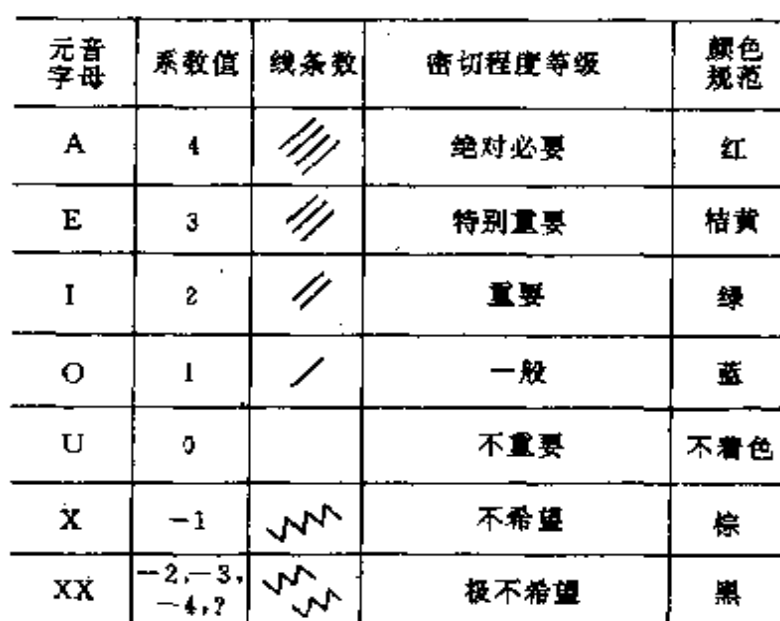 元音字母 系数值 线条数 密切程度等级 颜色规范
A 4 绝对必要 红
E 3 特别重要 桔黄
I 2 重要 绿
O 1 一般 蓝
U 0 不重要 不着色
X -1 不希望 棕
XX -2,-3,-4,? 极不希望 黑